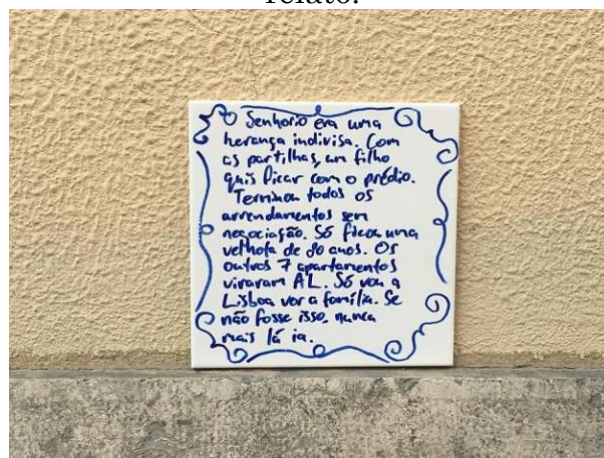 relato.
O Senhorio era uma
herança indivisa. Com
as partilhas, um filho
quis ficar com o prédio.
Terminou todos os
arrendamentos sem
negociação. Só ficou uma
velhota de 80 anos. Os
outros 7 apartamentos
viraram AL. Só vou a
Lisboa ver a família. Se
não fosse isso, nunca
mais lá ia.